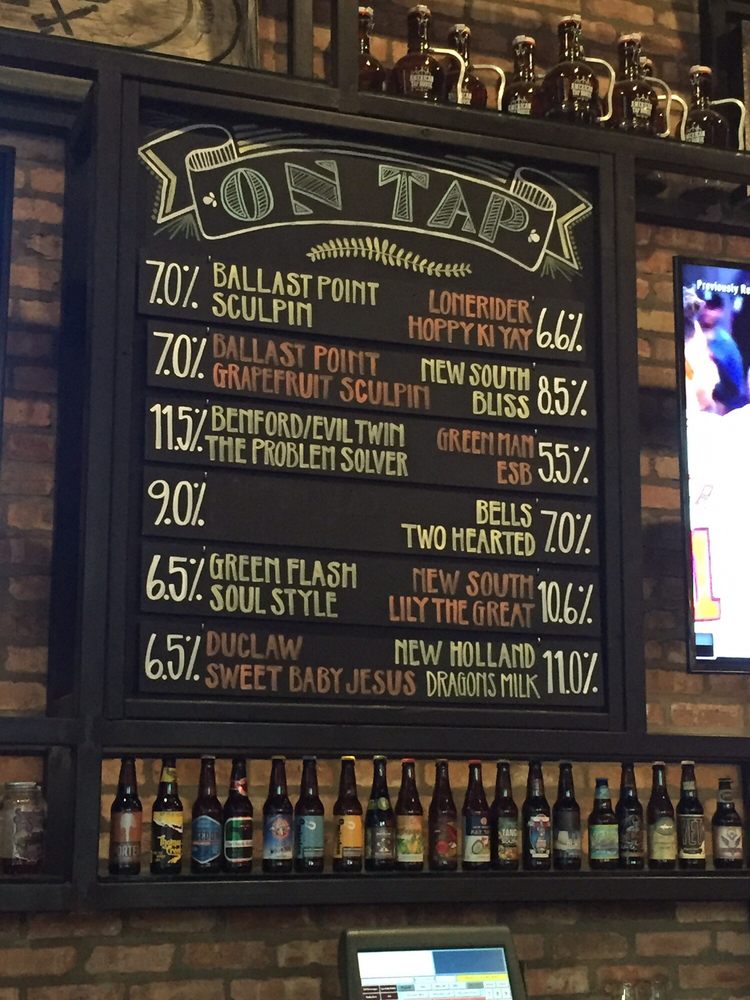 ON TAP
7.0% BALLAST POINT
SCULPIN
LONERIDER
HOPPY KI YAY 6.6%
7.0% BALLAST POINT
GRAPEFRUIT SCULPIN
NEW SOUTH
BLISS 8.5%
11.5% BENFORD/EVIL TWIN
THE PROBLEM SOLVER
GREEN MAN
ESB 5.5%
9.0%
BELLS
TWO HEARTED 7.0%
6.5% GREEN FLASH
SOUL STYLE
NEW SOUTH
LILY THE GREAT 10.6%
6.5% DUCLAW
SWEET BABY JESUS
NEW HOLLAND
DRAGONS MILK 11.0%
AMERICAN
TAP HOUSE
Previously